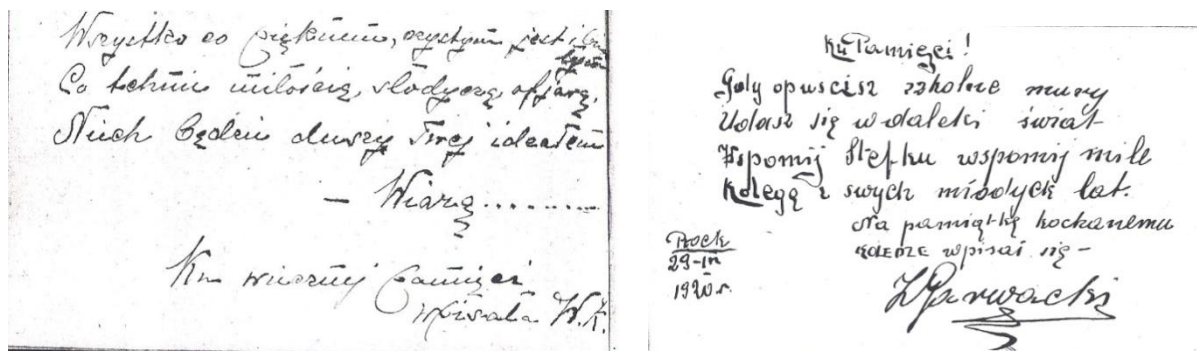 Wszystko co pięknem, czystym jest i
Co tchnie miłością, słodyczą, ofjarą,
Niech będzie duszy Twej ideałem
— Wiarą.........
Ku wiecznej pamięci
wpisała W. K.
Ku Pamięci!
Gdy opuscisz szkolne mury
Udasz się w daleki świat
Wspomij Stefku wspomij mile
Kolegę z swych młodych lat.
Na pamiątkę kochanemu
koledze wpisał się –
Płock
29-III
1920 r.